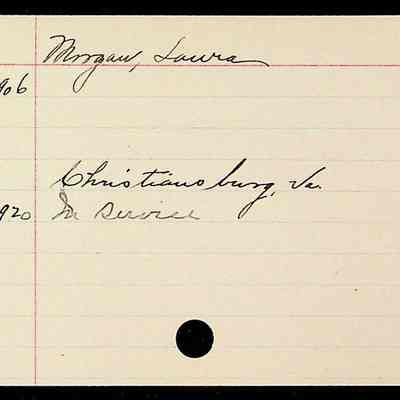 Morgan, Laura
906
Christiansburg, Va.
920 In Service